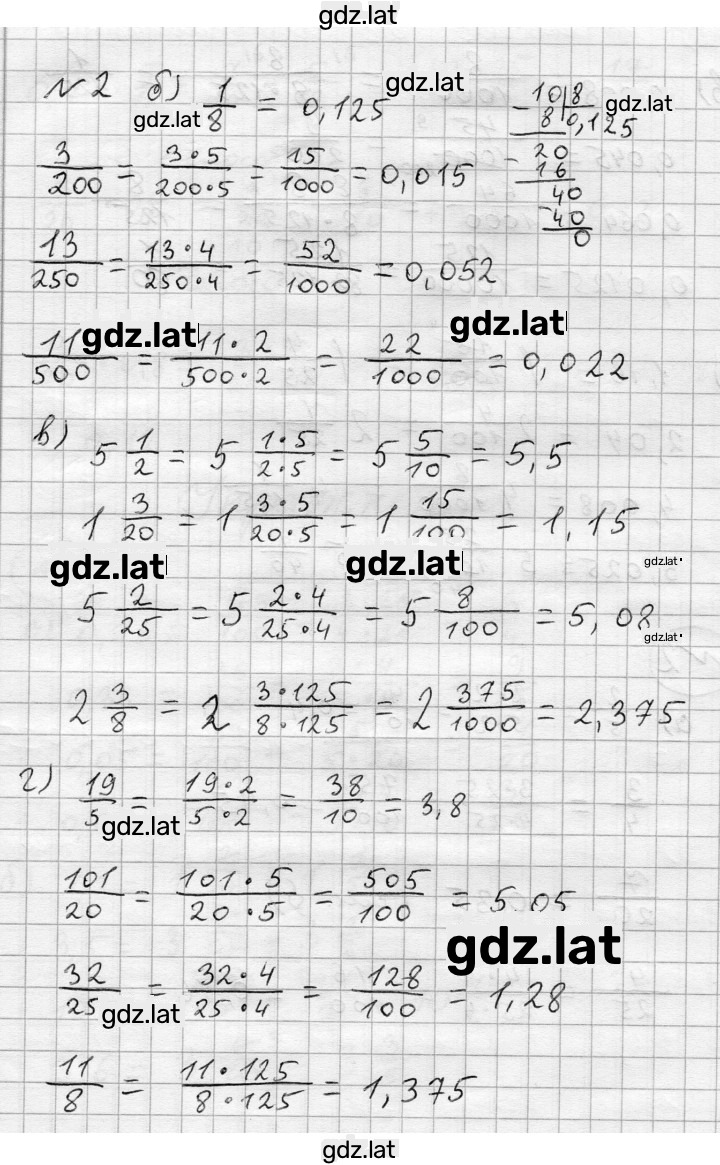 gdz.lat
№2 б) 1/8 = 0,125
gdz.lat
gdz.lat
10 | 8
8 0,125
gdz.lat
- 20
16
40
- 40
0
3/200 = 3·5/200·5 = 15/1000 = 0,015
13/250 = 13·4/250·4 = 52/1000 = 0,052
gdz.lat
gdz.lat
11/500 = 11·2/500·2 = 22/1000 = 0,022
в) 5 1/2 = 5 1·5/2·5 = 5 5/10 = 5,5
1 3/20 = 1 3·5/20·5 = 1 15/100 = 1,15
gdz.lat
gdz.lat
gdz.lat
5 2/25 = 5 2·4/25·4 = 5 8/100 = 5,08
gdz.lat
2 3/8 = 2 3·125/8·125 = 2 375/1000 = 2,375
г) 19/5 = 19·2/5·2 = 38/10 = 3,8
gdz.lat
101/20 = 101·5/20·5 = 505/100 = 5,05
gdz.lat
32/25 = 32·4/25·4 = 128/100 = 1,28
gdz.lat
11/8 = 11·125/8·125 = 1,375
gdz.lat